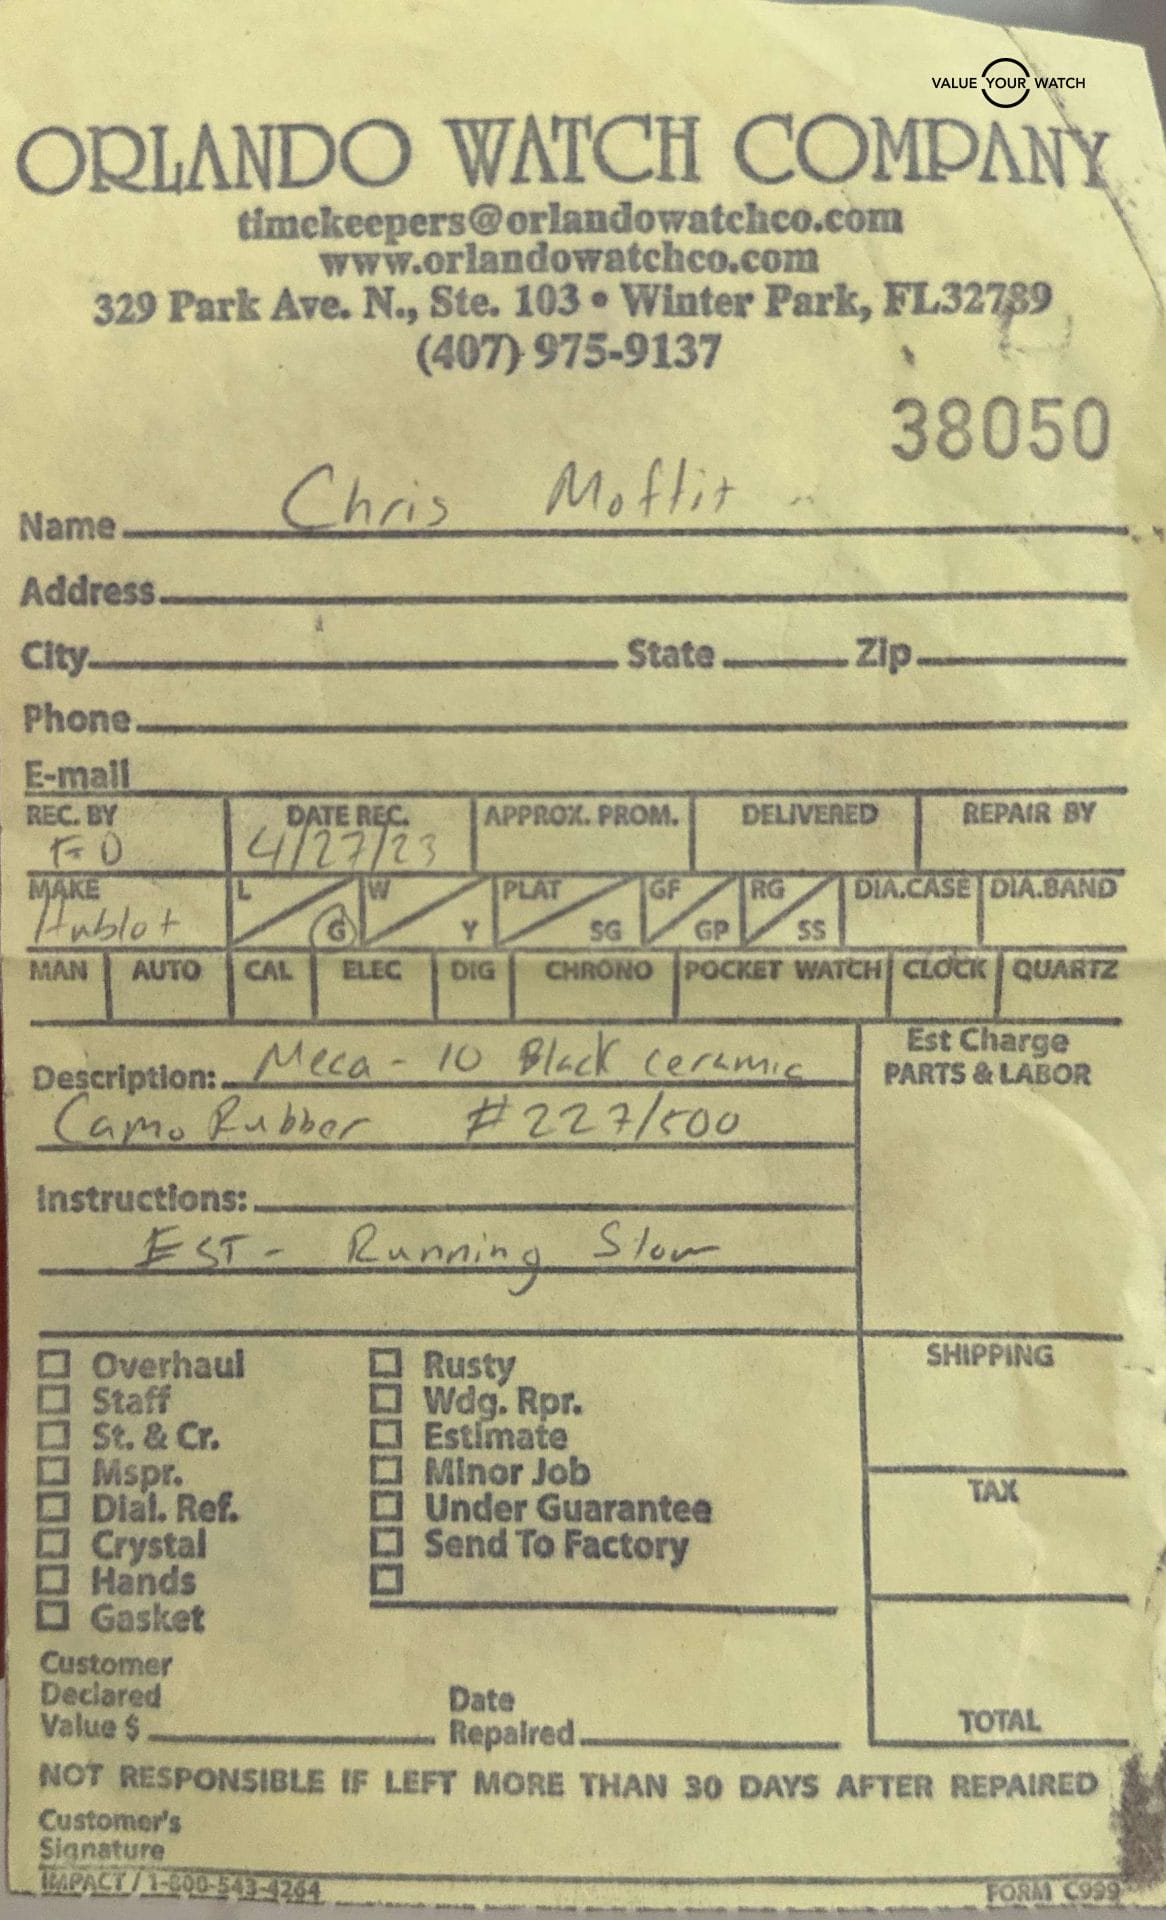 VALUE YOUR WATCH
ORLANDO WATCH COMPANY
timekeepers@orlandowatchco.com
www.orlandowatchco.com
329 Park Ave. N., Ste. 103 • Winter Park, FL32789
(407) 975-9137
38050
Name Chris Moffit
Address
City State Zip
Phone
E-mail
REC. BY DATE REC. APPROX. PROM. DELIVERED REPAIR BY
FO 4/27/23
MAKE L G W Y PLAT SG GF GP RG SS DIA.CASE DIA.BAND
Hublot
MAN AUTO CAL ELEC DIG CHRONO POCKET WATCH CLOCK QUARTZ
Est Charge
PARTS & LABOR
Description: Meca-10 Black ceramic
Camo Rubber #227/500
Instructions:
EST- Running Slow
Overhaul Rusty SHIPPING
Staff Wdg. Rpr.
St. & Cr. Estimate
Mspr. Minor Job TAX
Dial. Ref. Under Guarantee
Crystal Send To Factory
Hands
Gasket
Customer
Declared Date
Value $ Repaired TOTAL
NOT RESPONSIBLE IF LEFT MORE THAN 30 DAYS AFTER REPAIRED
Customer's
Signature
IMPACT / 1-800-543-4264 FORM C999